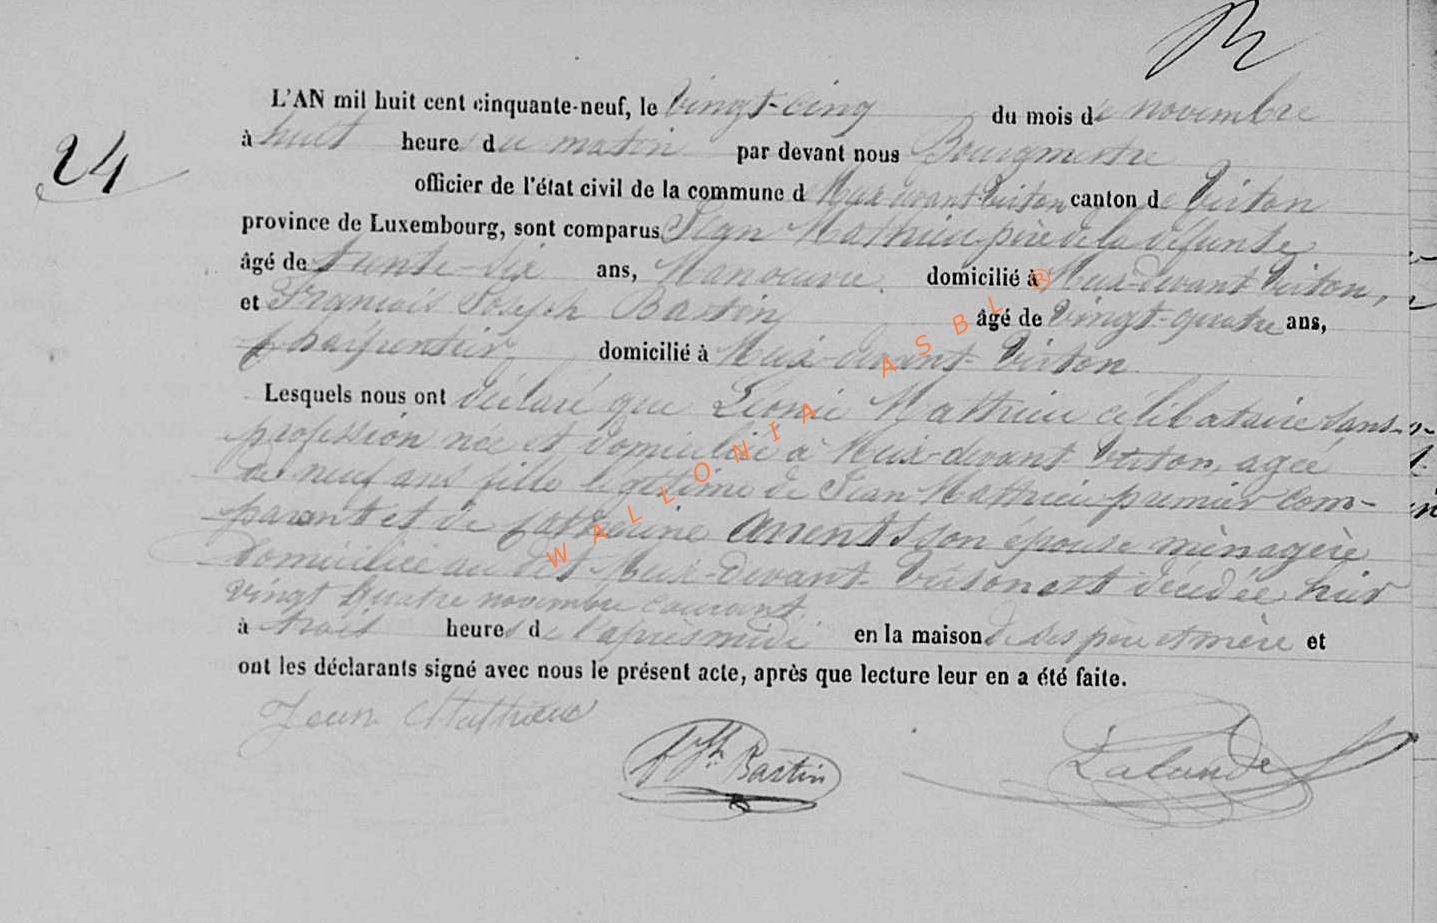 L'AN mil huit cent cinquante-neuf, le vingt-cinq du mois de novembre
24
à huit heures du matin par devant nous Bourgmestre
officier de l'état civil de la commune d Meix-devant-Virton canton de Virton
province de Luxembourg, sont comparus Jean Mathieu père de la défunte
âgé de trente-six ans, Manoeuvre domicilié à Meix-devant Virton,
et François Joseph Bastin âgé de vingt-quatre ans,
Charpentier domicilié à Meix-devant-Virton
Lesquels nous ont déclaré que Léonie Mathieu célibataire sans
profession née et domiciliée à Meix-devant Virton, agée
de neuf ans fille légitime de Jean Mathieu premier com-
parant et de Catherine Arrents son épouse ménagère
domiciliée au dit Meix-devant-Virton est décédée hier
vingt quatre novembre courant
à trois heures de l'après midi en la maison de ses père et mère et
ont les déclarants signé avec nous le présent acte, après que lecture leur en a été faite.
Jean Mathieu
Bastin
Lalande
WALLONIA ASBL ®